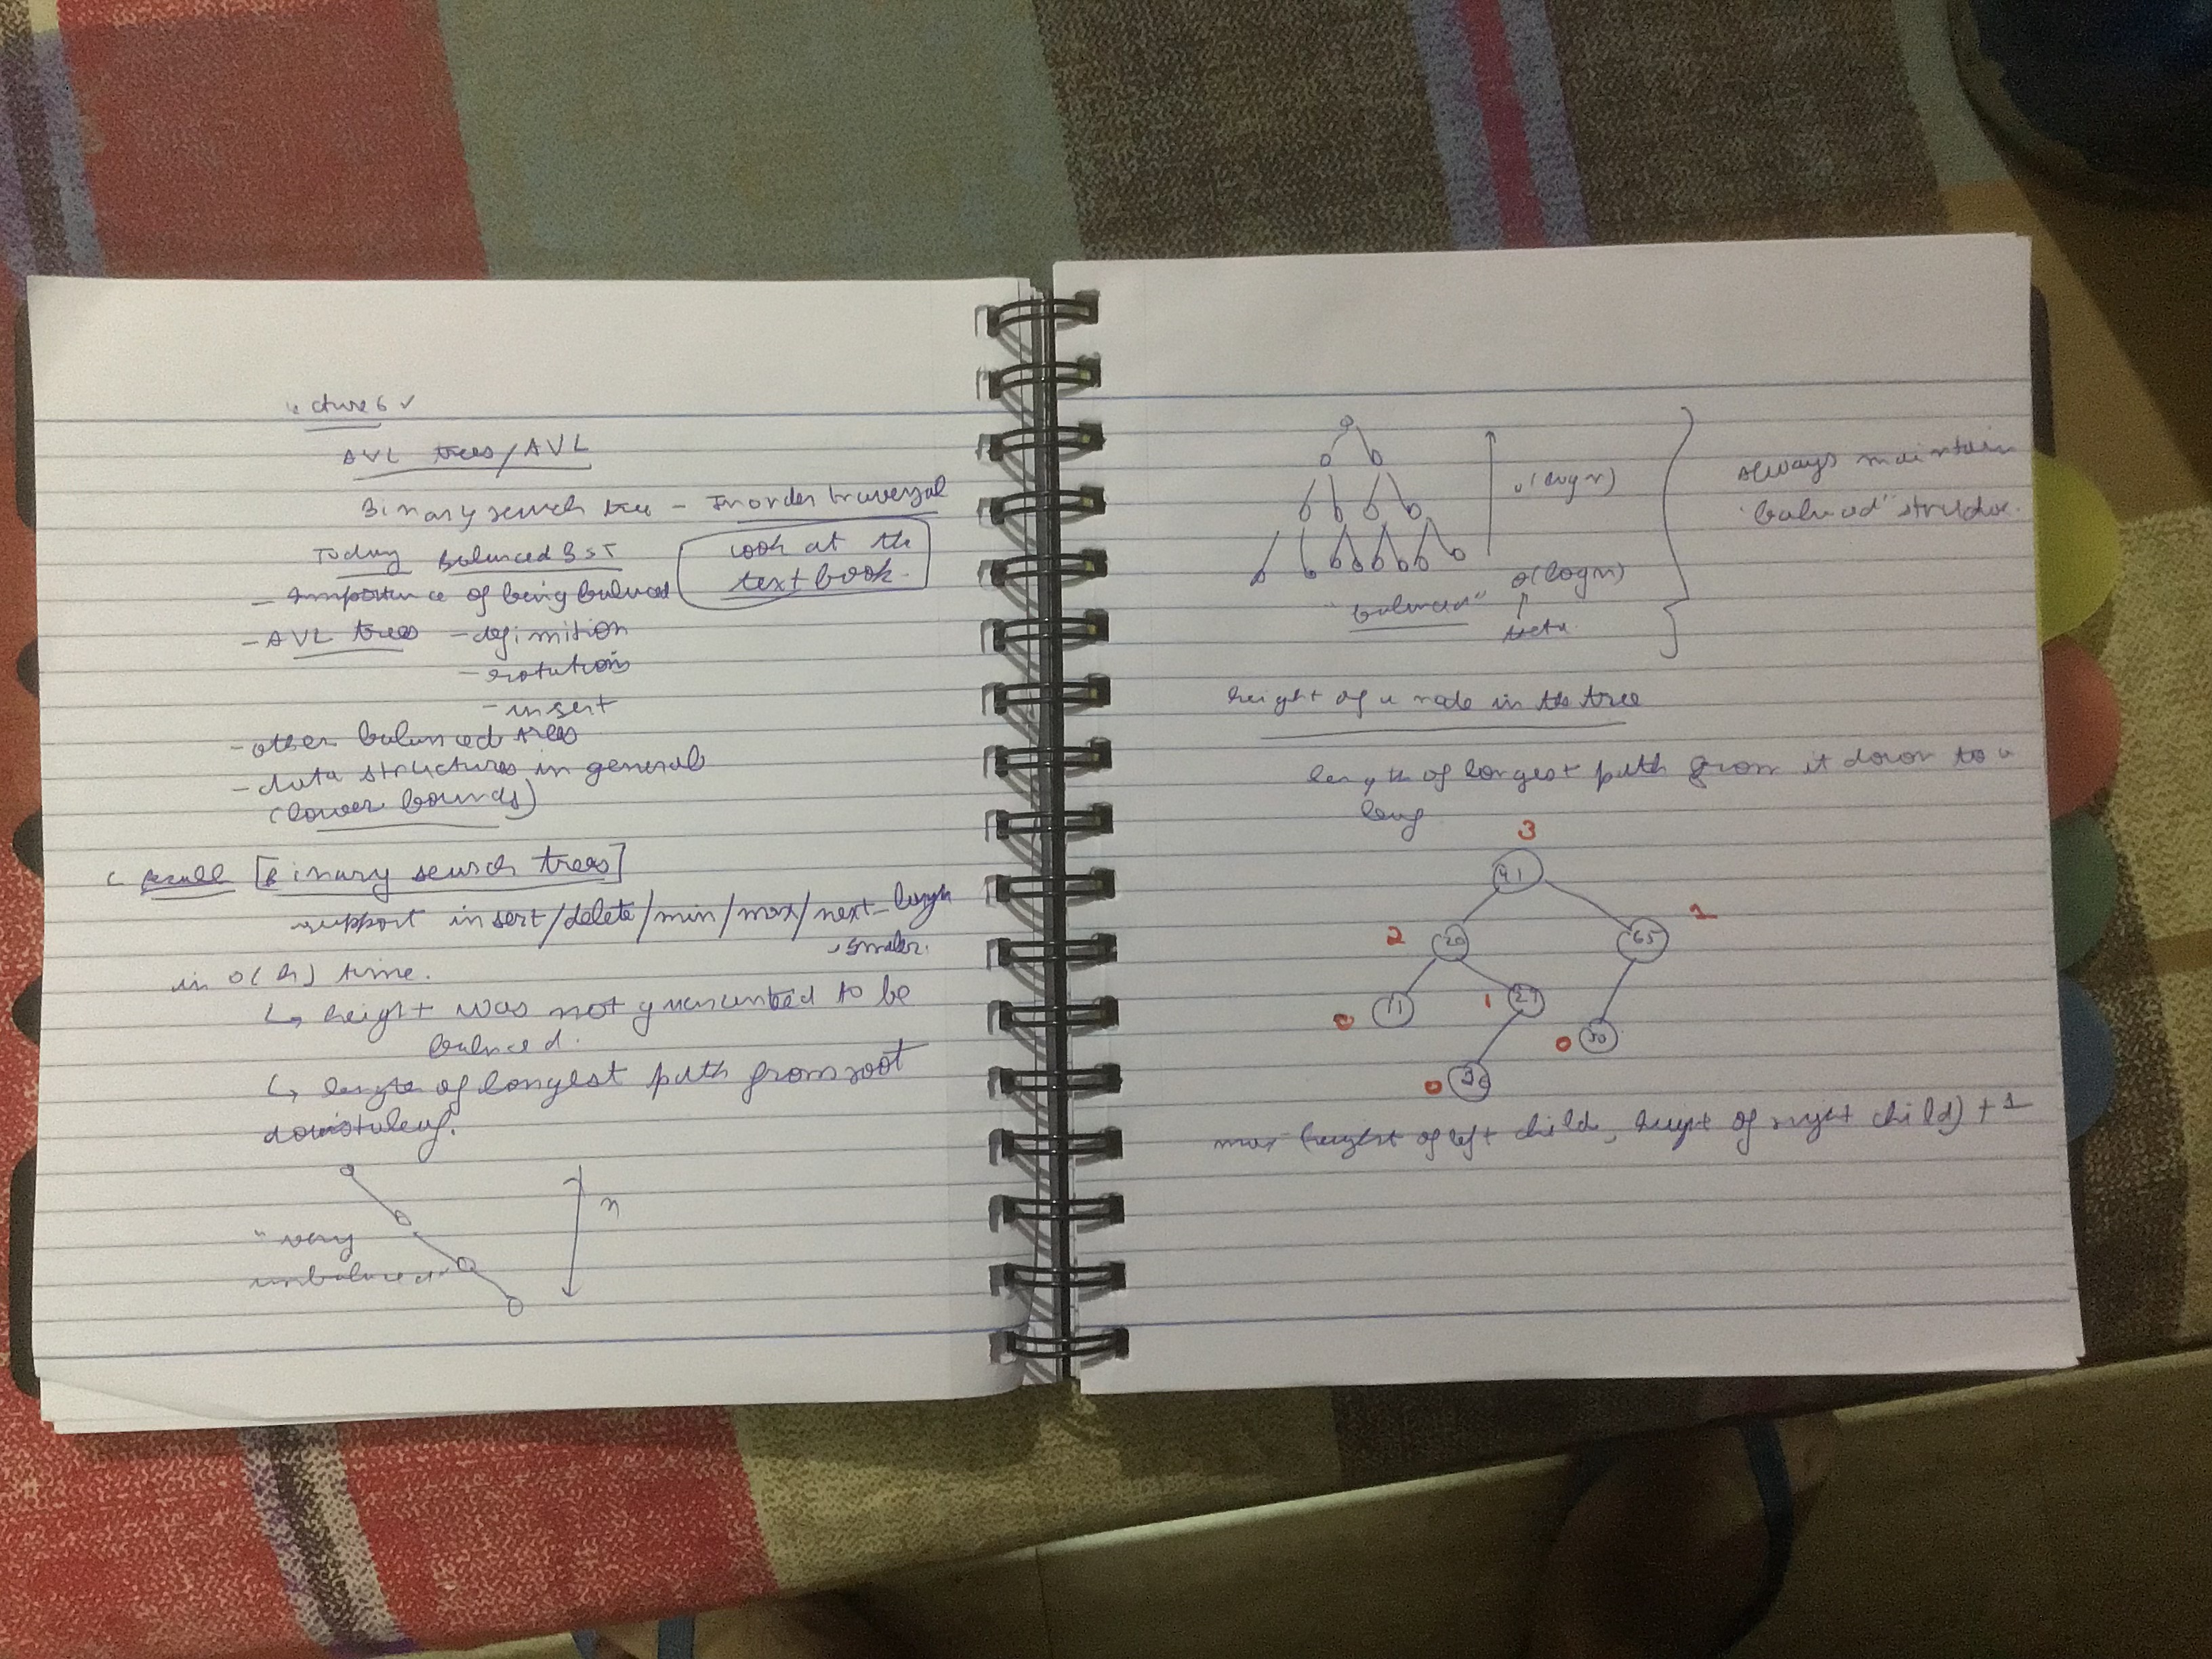 Lecture 6 ✓
AVL trees/AVL
Binary search tree - Inorder traversal
Today Balanced BST
look at the
textbook.
- Importance of being balanced
- AVL trees - definition
- rotations
- insert
- other balanced trees
- data structures in general
(lower bounds)
Recall [Binary search trees]
support insert/delete/min/max/next-larger
, smaller.
in O(h) time.
↳ height was not guaranteed to be
balanced.
↳ length of longest path from root
down to leaf.
n
"very
unbalanced"
O(log n)
Always maintain
"balanced" structure.
θ(log n)
"balanced" ↑
theta
height of a node in the tree
length of longest path from it down to a
leaf
3
41
2 20 65 1
0 11 1 29
0 50
0 26
max (height of left child, height of right child) + 1